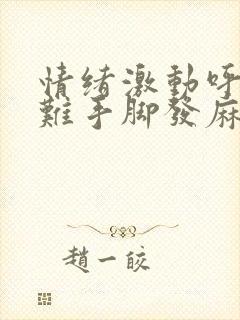 情绪激動呼
難手脚發麻
趙一皎